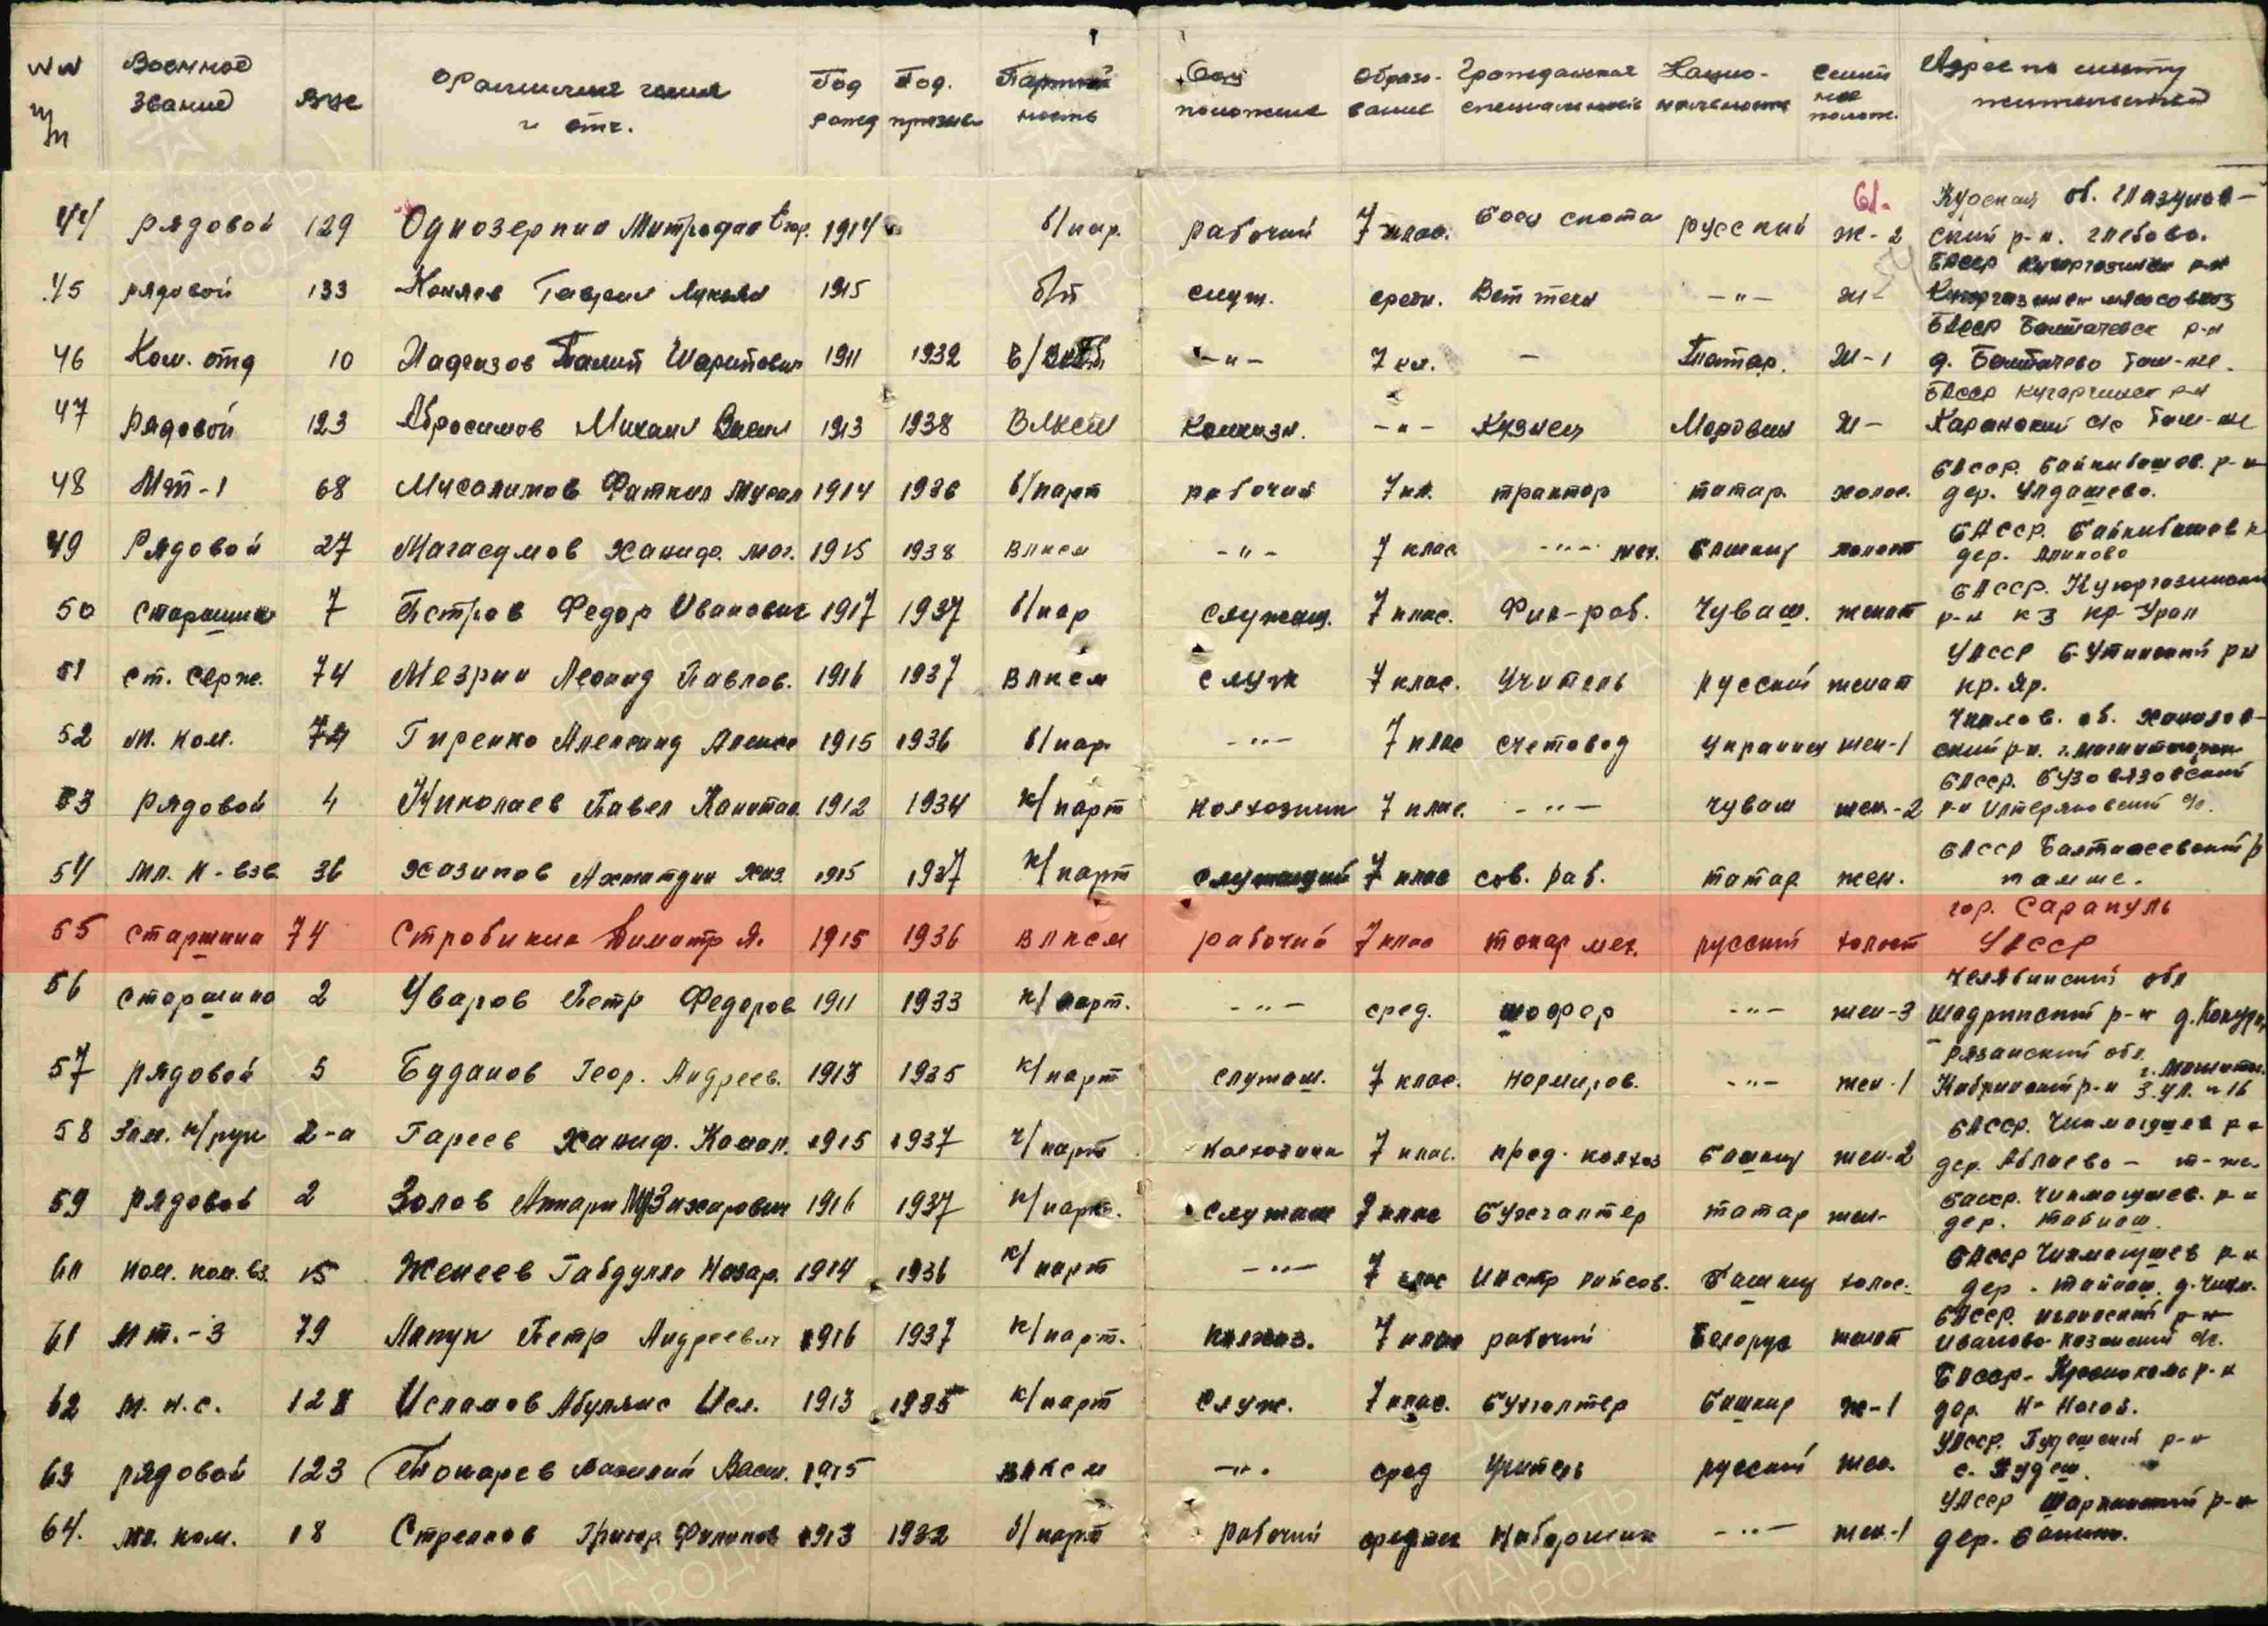 NN п/п Военное звание ВУС Фамилия имя и отч. Год рожд Год. призыв Партий ность Соц положение Образо- вание Гражданская специальность Нацио- нальность Семей ное полож. Адрес по месту жительства
61. Курская об. Глазунов-
44 рядовой 129 Однозеркин Митрофан 1914 б/пар. рабочий 7 клас. боец скота русский ж-2 ский р-н. Глебово.
БАССР Куюргазинск р-н
45 рядовой 133 Коняев Гаврил Лукьян 1915 б/п служ. средн. Вет техн -"- ж- Куюргазинск мясосовхоз
БАССР Балтачевск р-н
46 Ком. отд 10 Надгизов Талип Шарипович 1911 1932 -"- 7 кл. - Татар. Ж-1 д. Балтачево Там-же.
БАССР Кугарчинск р-н
47 Рядовой 123 Абросимов Михаил Васил 1913 1938 ВЛКСМ Колхозн. -"- Кузнец Мордвин Ж- с/с Там-же
БАССР. Байкибашев. р-н
48 Мят-1 68 Мусалимов Фаткил Мусал 1914 1936 б/парт рабочий 7 кл. трактор татар. холос. дер. Улдашево.
БАССР. Байкибашев
49 Рядовой 27 Магасумов Ханиф. Маг. 1915 1938 ВЛКСМ -"- 7 клас -"- мех. башкир холост дер. Аликово
БАССР. Куюргазинский
50 старшина 7 Петров Федор Иванович 1917 1937 б/пар служащ. 7 клас. Фин-раб. Чуваш. женат р-н к з кр-Урал
УАССР б-Утинский рн
51 ст. серж. 74 Мезрин Леонид Павлов. 1916 1937 ВЛКСМ служ 7 клас. Учитель русский женат кр. Яр.
Чкалов. об. Халилов-
52 м. ком. 74 Гиренко Александ Алексе 1915 1936 б/пар. -"- 7 клас счетовод украинц жен-1 ский р-н.
БАССР. Бузовязовский
53 рядовой 4 Николаев Павел Капитал 1912 1934 к/парт колхозник 7 клас. -"- чуваш жен-2 р-н Илтеряковский с/с.
БАССР Балтачеевский р
54 мл. к-взв. 36 Хазипов Ахматдин Хаз. 1915 1937 к/парт служащий 7 клас сов. раб. татар жен.
гор. Сарапуль
55 старшина 74 Стробыкин Димитр Я. 1915 1936 ВЛКСМ рабочий 7 клас токар мех. русский холост УАССР
Челябинский обл
56 старшина 2 Уваров Петр Федоров 1911 1933 к/парт. -"- сред. шофер -"- жен-3 Шадринский р-н
Рязанский обл. г. Магнит.
57 рядовой 5 Буданов Геор. Андреев. 1913 1935 к/парт служащ. 7 клас. нормиров. -"- жен-1 р-н 3. ул. 16
БАССР. Чикмагушев р-н
58 Зам. п/рук 2-а Гареев Ханиф. Камал. 1915 1937 ч/парт колхозник 7 клас. пред. колхоз башкир жен-2 дер. Аблаево - т-же.
БАССР. Чикмагушев. р-н
59 рядовой 2 Золов Захарович 1916 1937 к/парт. служащ 7 клас Бухгалтер татар жен-
БАССР Чикмагушев р-н
60 пом. ком. вз. 15 Женеев Габдулла Назар. 1914 1936 к/парт -"- 7 клас Инстр райсов. Башкир холос.
БАССР. Иглинский р-н
61 м т.-3 79 Лапун Петр Андреевич 1916 1937 к/парт. колхоз. 7 клас рабочий Белорус женат Иваново-Казанский с/с.
БАССР - Краснокам р-н
62 м. к. с. 128 Исламов Абулъяис Исл. 1913 1935 к/парт служ. 7 клас. Бухгалтер башкир ж-1 дер. Н-
УАССР. р-н
63 рядовой 123 Токарев Василий Васил. 1915 ВЛКСМ -"- сред учитель русский жен.
УАССР Шарканский р-н
64. мл. ком. 18 Стрелков Григор Филипов 1913 1932 б/парт рабочий среднее Наборщик -"- жен-1 дер.